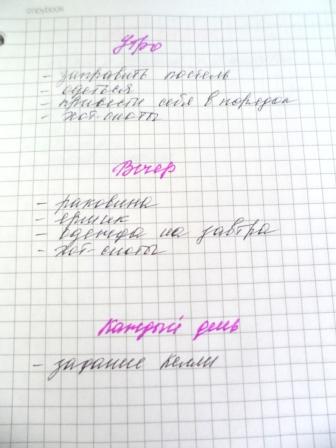 Утро
- заправить постель
- одеться
- привести себя в порядок
- хот-споты
Вечер
- раковина
- ершик
- одежда на завтра
- хот-споты
Каждый день
- задание Келли